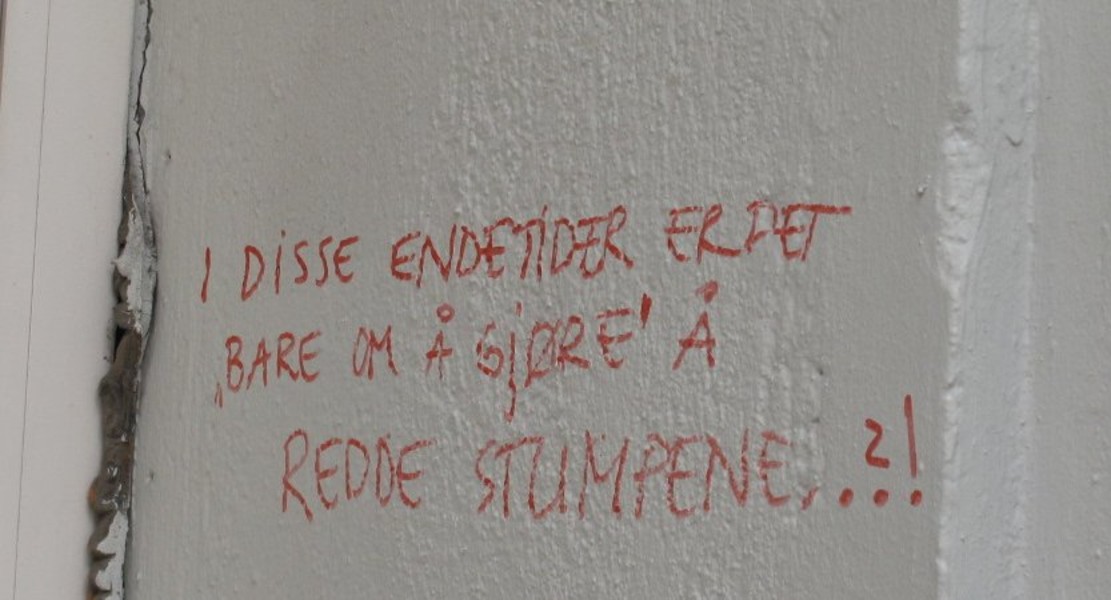 I DISSE ENDETIDER ER DET
,BARE OM Å GJØRE' Å
REDDE STUMPENE...?!